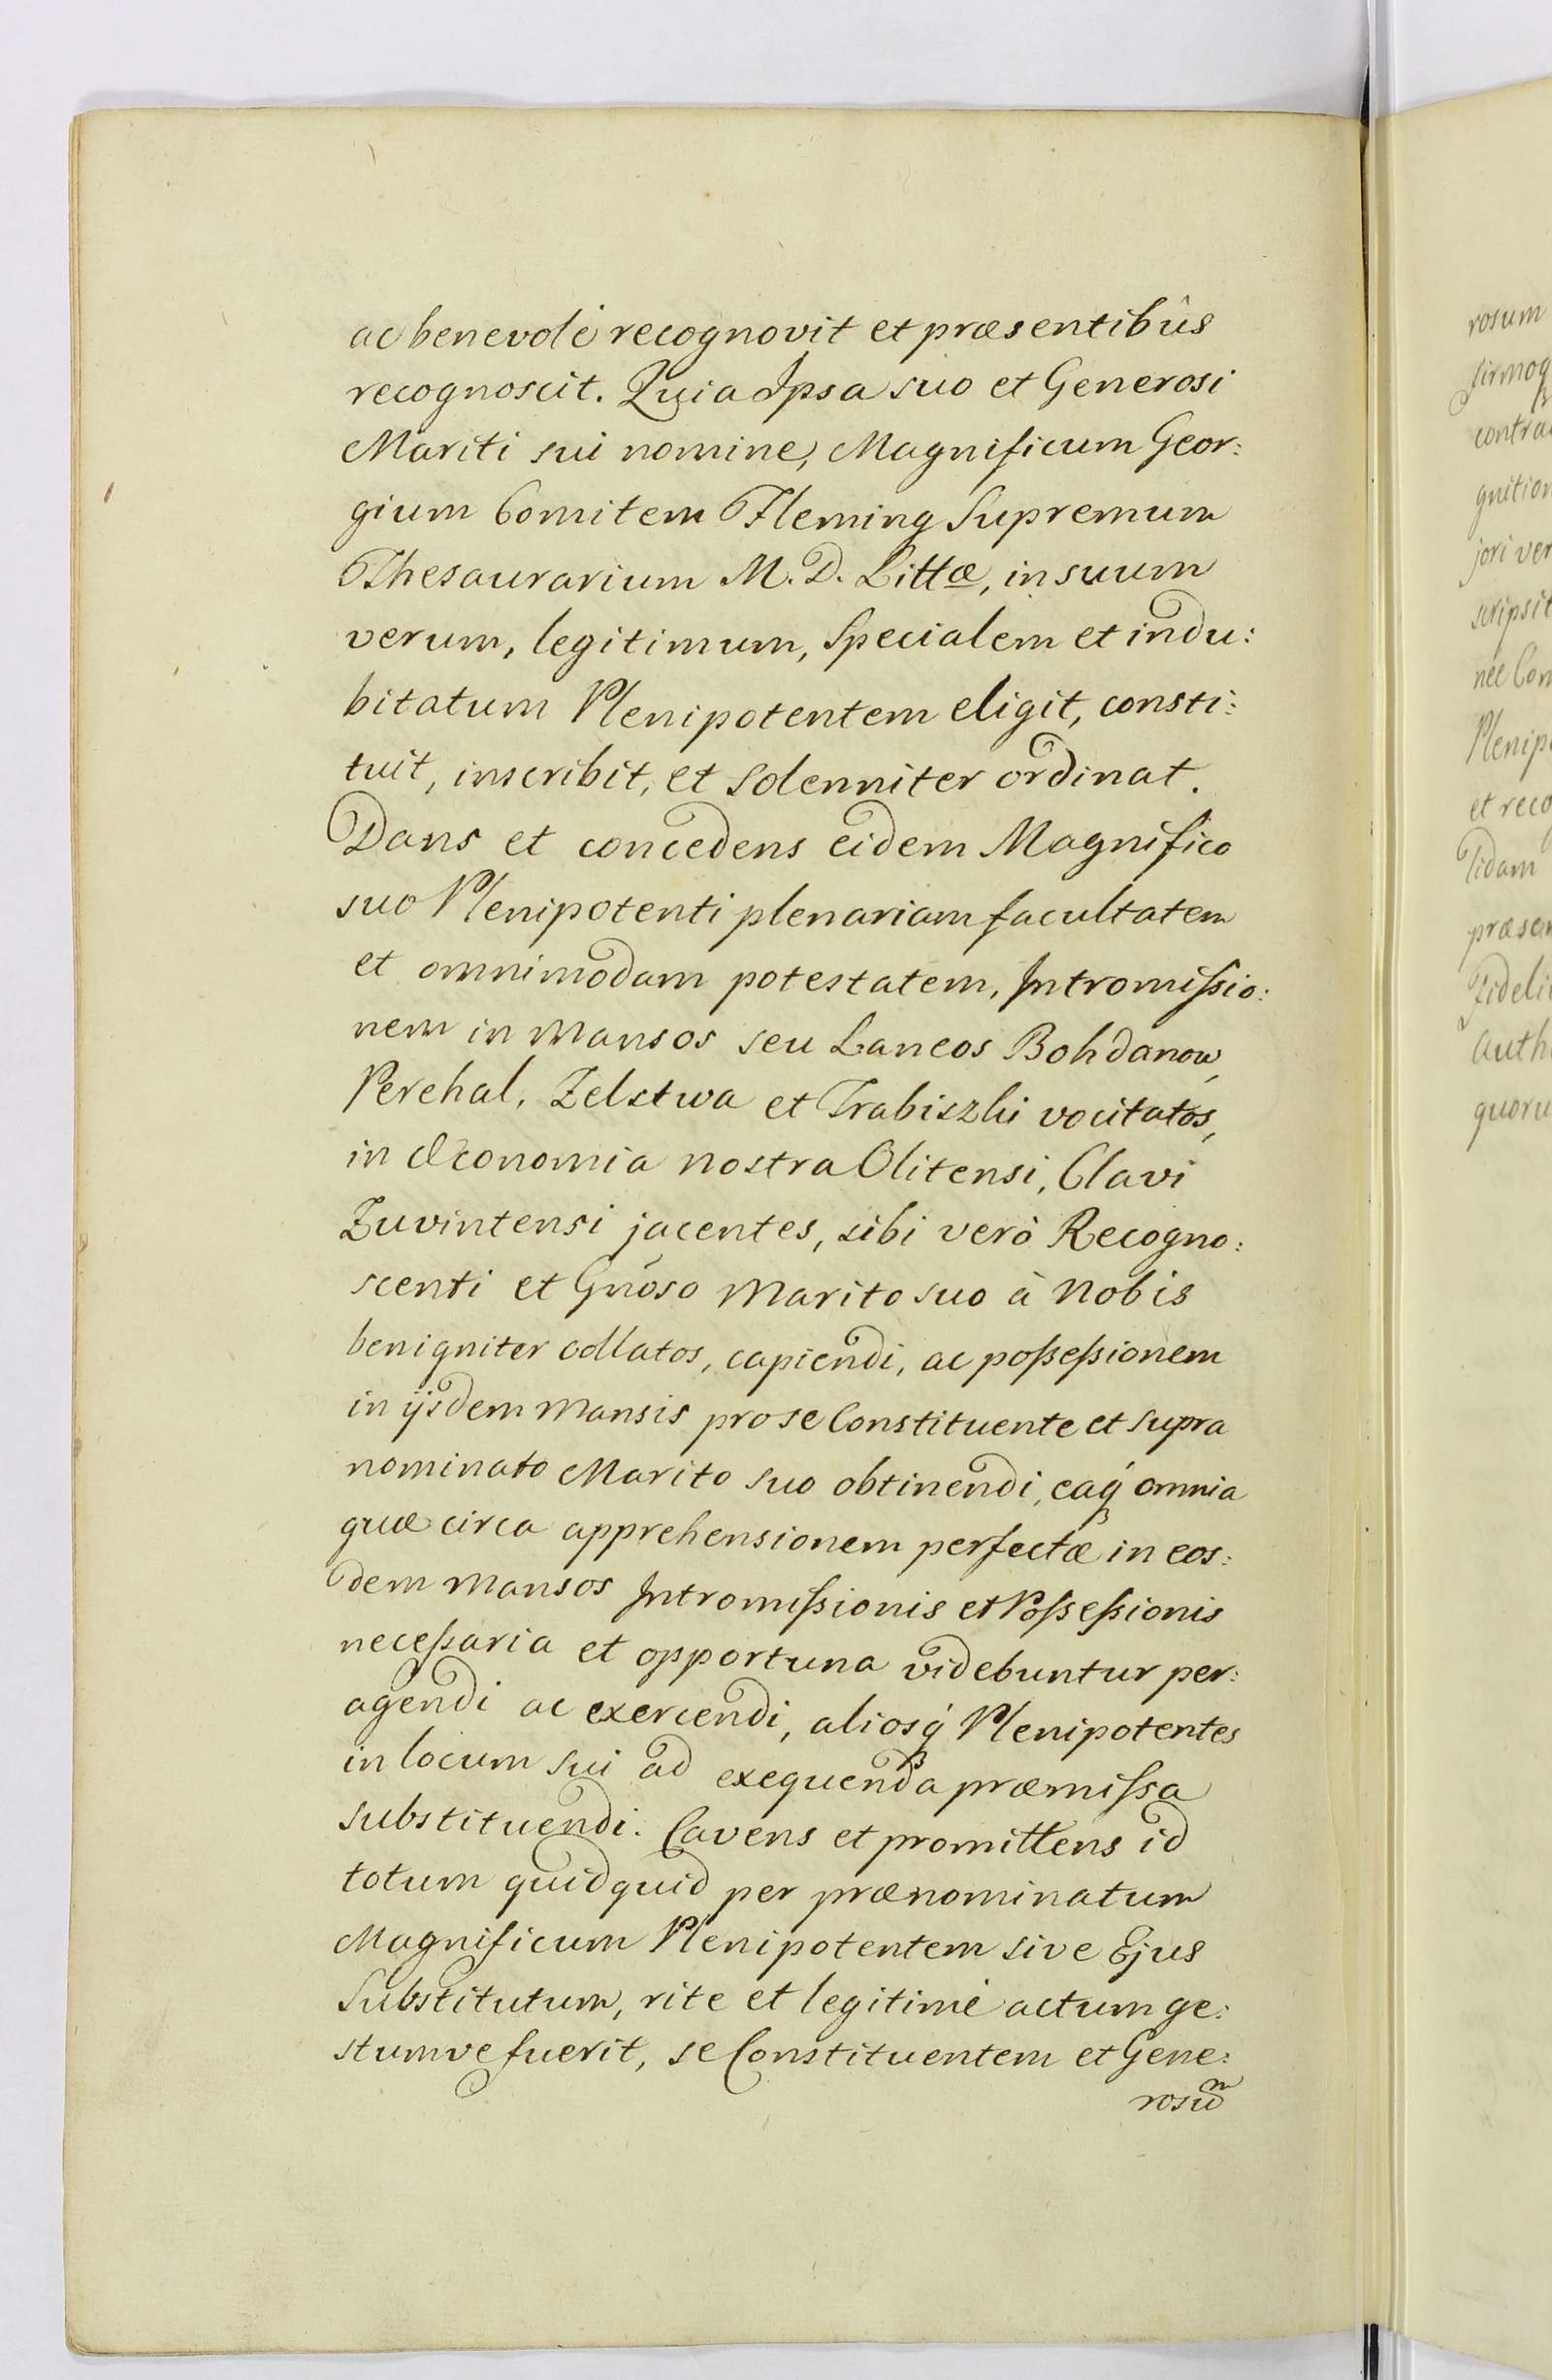 ac benevolè recognovit et præsentibûs
recognoscit. Quia Ipsa suo et Generosi
Mariti sui nomine, Magnificum Geor:
gium Comitem Fleming Supremum
Thesaurarium M. D. Littæ, in suum
verum, legitimum, Specialem et indu:
bitatum Plenipotentem eligit, consti:
tuit, inscribit, et solenniter ordinat.
Dans et concedens eidem Magnifico
suo Plenipotenti plenariam facultatem
et omnimodam potestatem, Intromißio:
nem in Mansos seu Laneos Bohdanow,
Perehal, Zelstwa et Trabiszki vocitatos,
in Œconomia nostra Olitensi, Clavi
Zuvintensi jacentes, sibi verò Recogno:
scenti et Gnõso Marito suo à Nobis
benigniter collatos, capiendi, ac poßeßionem
in ijsdem Mansis pro se Constituente et supra
nominato Marito suo obtinendi, eaq́ omnia
quæ circa apprehensionem perfectæ in eos:
dem Mansos Intromißionis et Poßeßionis
neceßaria et opportuna videbuntur per:
agendi ac exercendi, aliosq́ Plenipotentes
in locum sui ad exequenda præmißa
substituendi. Cavens et promittens id
totum quidquid per prænominatum
Magnificum Plenipotentem sive Ejus
Substitutum, rite et legitimè actum ge:
stumve fuerit, se Constituentem et Gene:
rosum
rosum
firmoq
contra
gnition
jori ver
scripsit
nec Com
Plenip
et reco
lidam
præsen
Fideli
Auth
quoru